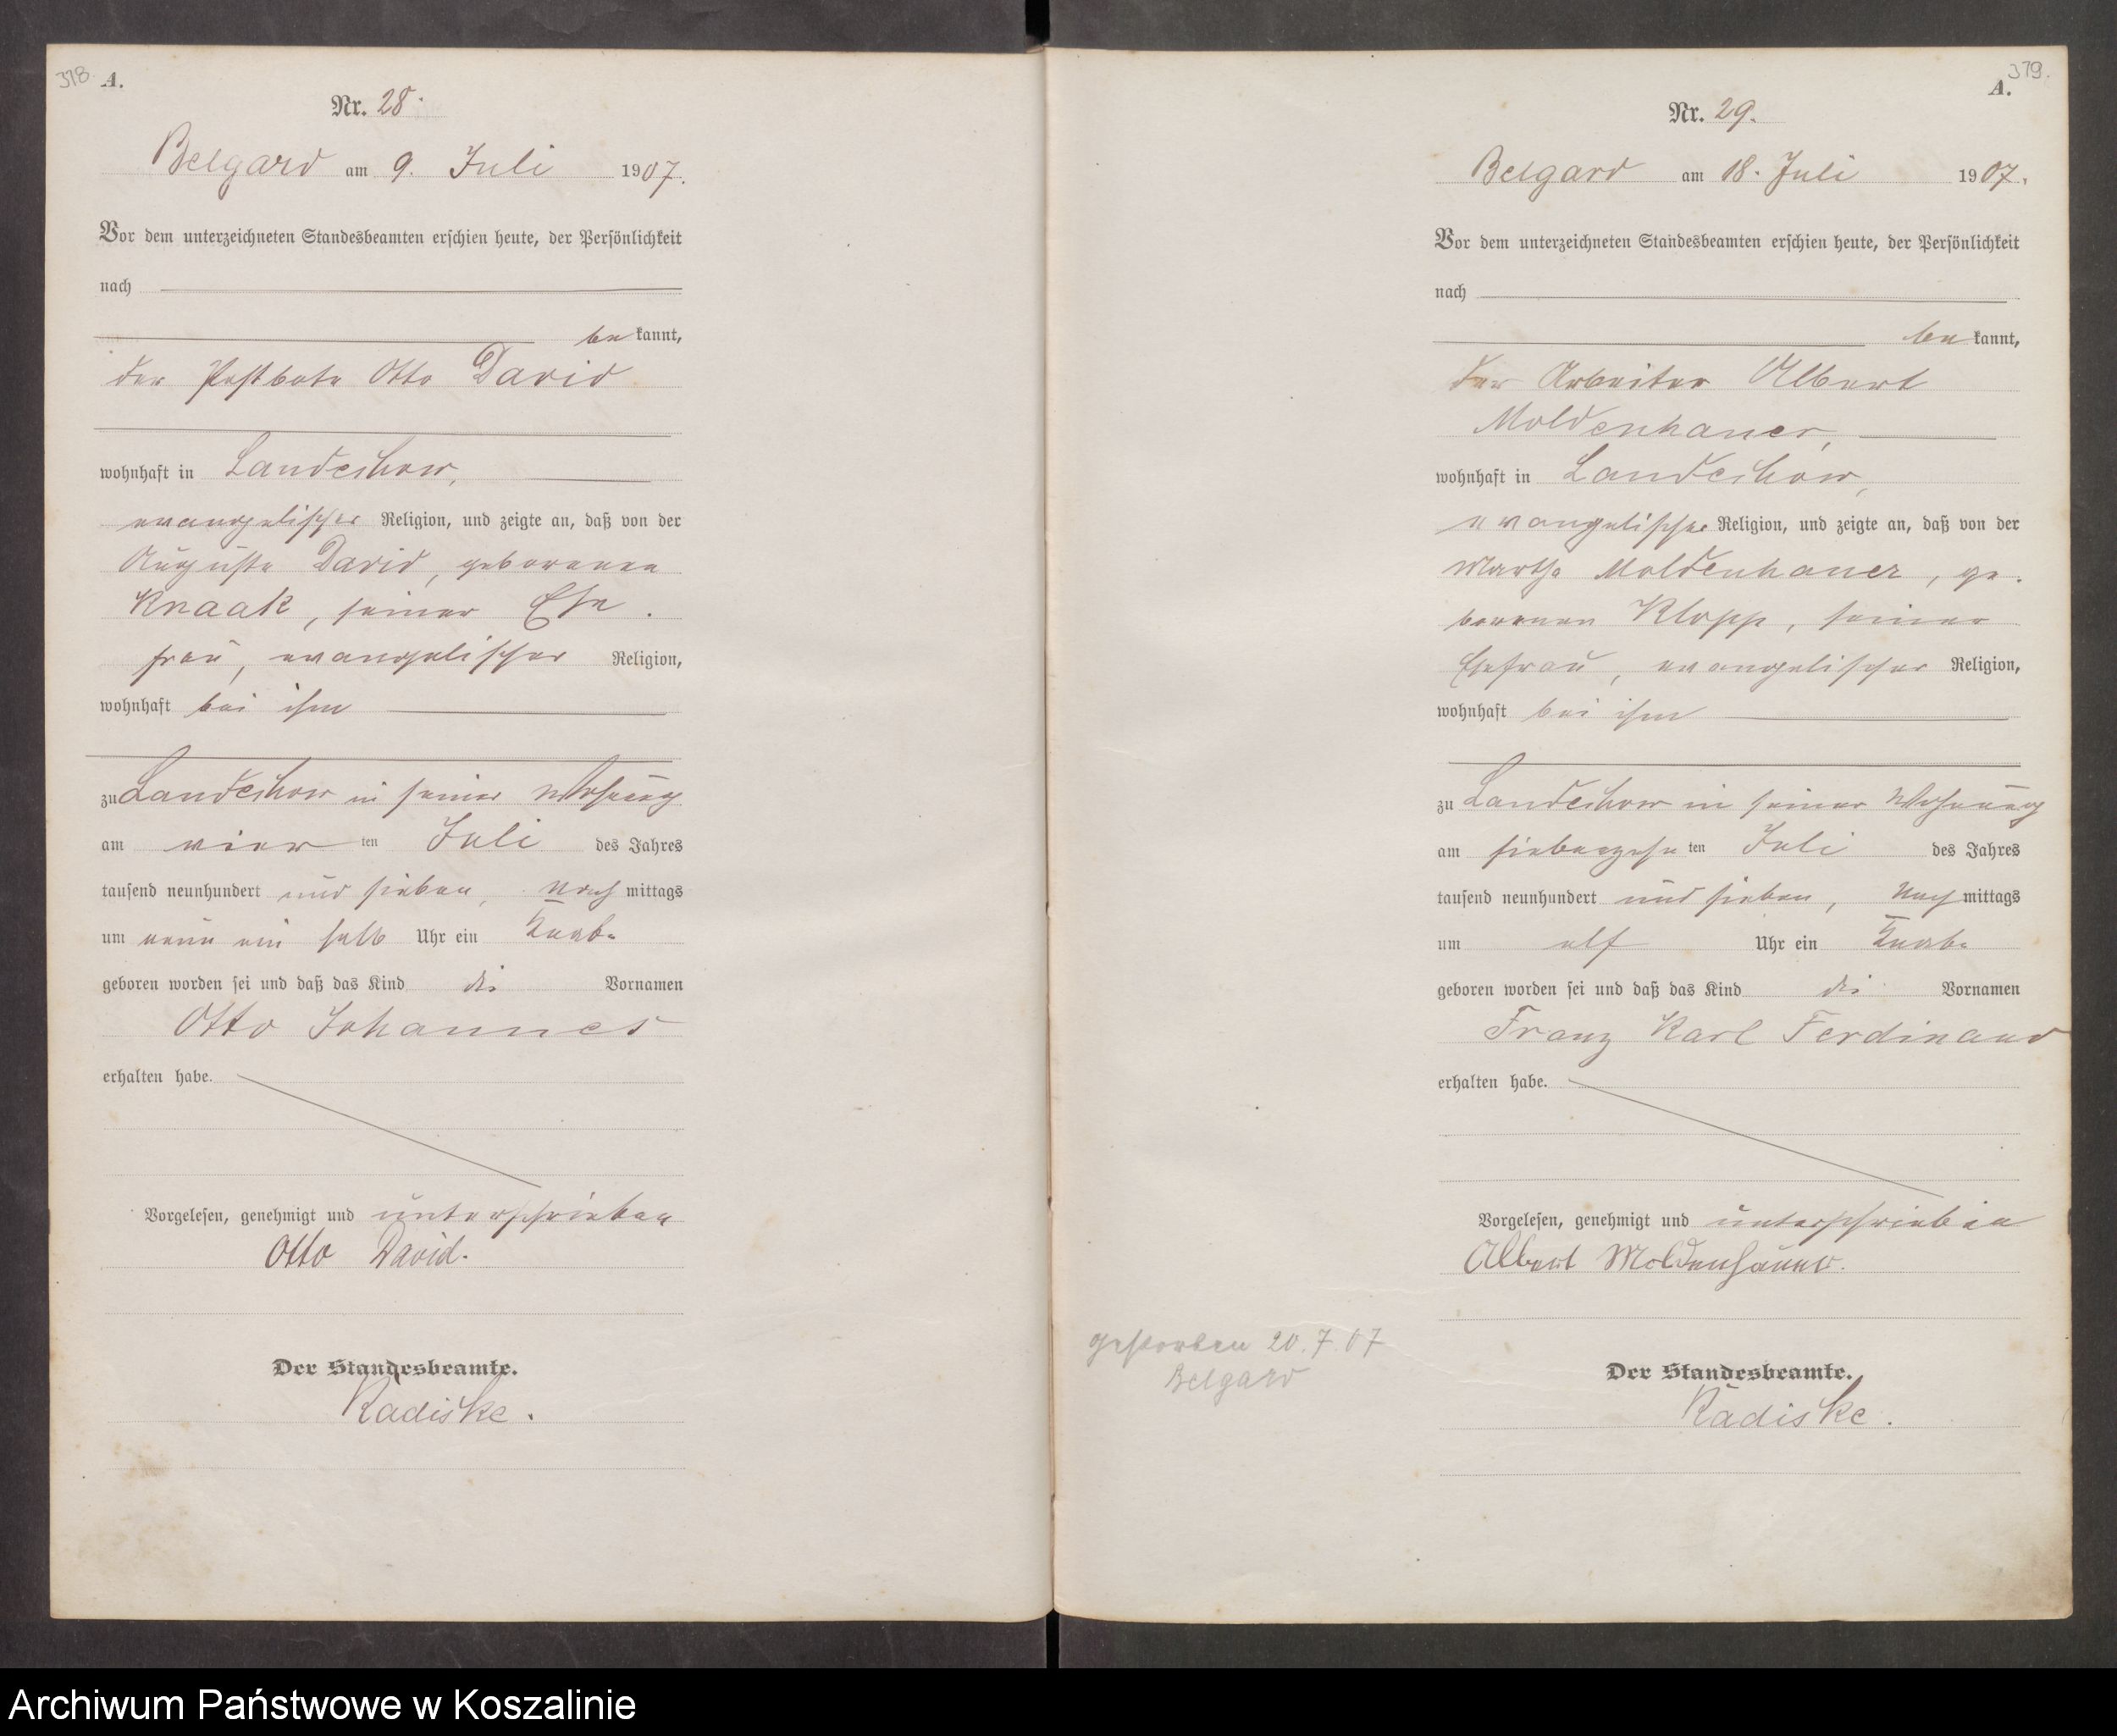 378.
A.
Nr. 28.
Belgard am 9. Juli 1907.
Vor dem unterzeichneten Standesbeamten erschien heute, der Persönlichkeit
nach
be kannt,
der Postbote Otto David
wohnhaft in Landechow,
evangelischer Religion, und zeigte an, daß von der
Auguste David, geborenen
Knaak, seiner Ehe-
frau, evangelischer Religion,
wohnhaft bei ihm
zu Landechow in seiner Wohnung
am vier ten Juli des Jahres
tausend neunhundert und sieben, Nach mittags
um neun ein halb Uhr ein Knabe
geboren worden sei und daß das Kind die Vornamen
Otto Johannes
erhalten habe.
Vorgelesen, genehmigt und unterschrieben
Otto David.
Der Standesbeamte.
Radiske.
379.
A.
Nr. 29.
Belgard am 18. Juli 1907.
Vor dem unterzeichneten Standesbeamten erschien heute, der Persönlichkeit
nach
be kannt,
der Arbeiter Albert
Moldenhauer,
wohnhaft in Landechow,
evangelischer Religion, und zeigte an, daß von der
Martha Moldenhauer, ge-
borenen Klopp, seiner
Ehefrau, evangelischer Religion,
wohnhaft bei ihm
zu Landechow in seiner Wohnung
am siebenzehn ten Juli des Jahres
tausend neunhundert und sieben, Nach mittags
um elf Uhr ein Knabe
geboren worden sei und daß das Kind die Vornamen
Franz Karl Ferdinand
erhalten habe.
Vorgelesen, genehmigt und unterschrieben
Albert Moldenhauer.
gestorben 20.7.07
Belgard
Der Standesbeamte.
Radiske.
Archiwum Państwowe w Koszalinie